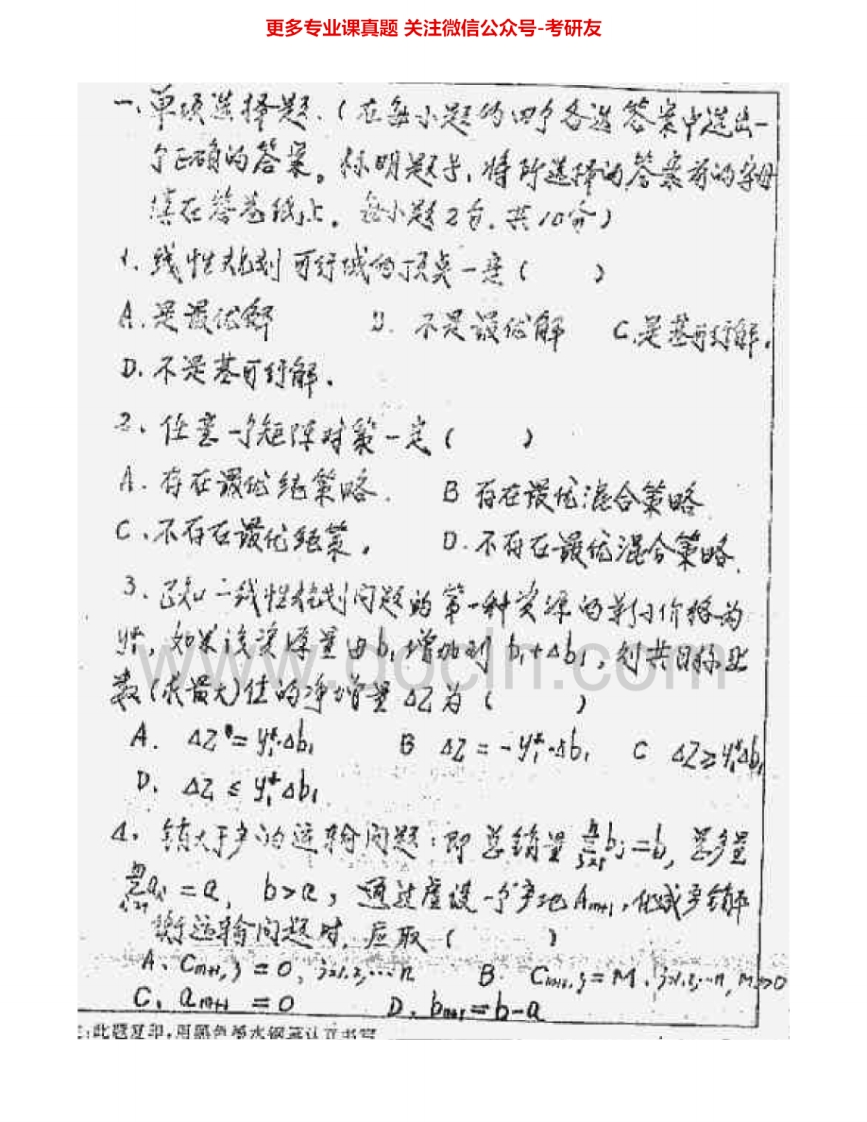 更多专业课真题 关注微信公众号-考研友
一、单项选择题.(在每小题的四个备选答案中选出一
个正确的答案。标明题号,将所选择的答案前的字母
填在答卷纸上。每小题2分.共10分)
1.线性规划可行域的顶点一定( )
A.是最优解 B. 不是最优解 C.是基可行解.
D.不是基可行解.
2、任意一个矩阵对策一定( )
A.存在最优纯策略. B 存在最优混合策略
C、不存在最优纯策. D.不存在最优混合策略.
3、已知一线性规划问题的第一种资源的影子价格为
y₁*,如果该资源量由b₁增加到 b₁+Δb₁,则其目标函
数(求最大)值的净增量ΔZ为( )
A. ΔZ = y₁*·Δb₁ B ΔZ = -y₁*·Δb₁ C ΔZ ≥ y₁*Δb₁
D. ΔZ ≤ y₁*Δb₁
4、销大于产的运输问题:即总销量 Σⁿⱼ₌₁bⱼ=b, 总产量
Σᵐᵢ₌₁aᵢ = a, b>a, 通过虚设一个产地 Aₘ₊₁,化成产销平
衡运输问题时,应取( )
A、Cₘ₊₁,ⱼ = 0, j=1,2,…n B Cₘ₊₁,ⱼ = M, j=1,2,…n, M>>0
C. aₘ₊₁ = 0 D. bₘ₊₁ = b-a
注:此题复印,用
www.docin.com